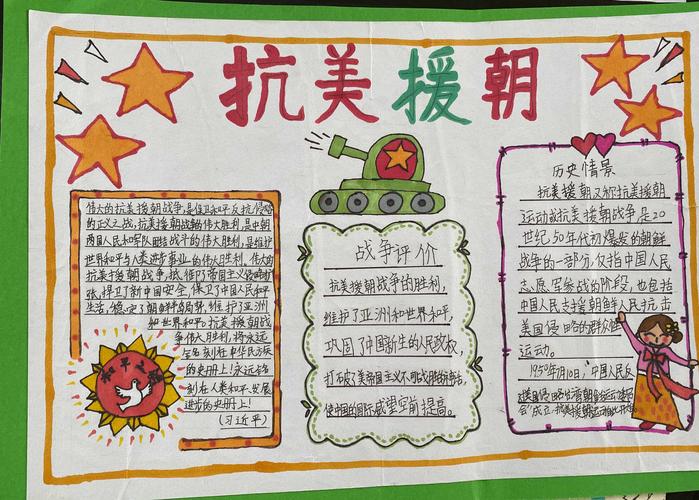 抗美援朝
伟大的抗美援朝战争，是保卫和平反抗侵略
的正义之战，抗美援朝战争的伟大胜利，是中朝
两国人民和军队团结战斗的伟大胜利，是维护
世界和平与人类进步事业的伟大胜利。伟大的
抗美援朝战争，抵御了帝国主义侵略扩
张，捍卫了新中国安全，保卫了中国人民和平
生活，稳定了朝鲜半岛局势，维护了亚洲
和世界和平。抗美援朝战
争伟大胜利，将永远
铭刻在中华民族
的史册上！永远铭
刻在人类和平、发展
进步的史册上！
（习近平）
和平之
战争评价
抗美援朝战争的胜利，
维护了亚洲和世界和平，
巩固了中国新生的人民政权，
打破了美帝国主义不可战胜的神话，
使中国的国际威望空前提高。
历史情景
抗美援朝又称抗美援朝
运动或抗美援朝战争是20
世纪50年代初爆发的朝鲜
战争的一部分，仅指中国人民
志愿军参战的阶段，也包括
中国人民支援朝鲜人民抗击
美国侵略的群众性
运动。
1950年7月10日，中国人民反
对美国侵略台湾朝鲜运动委员
会"成立，抗美援朝运动